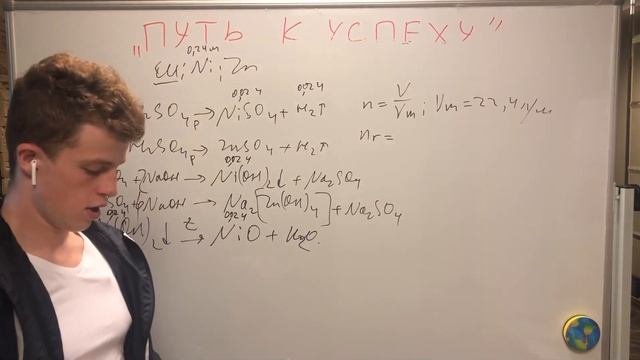 "ПУТЬ К УСПЕХУ"
0,24 м
Cu; Ni; Zn
0,24 0,24
SO4 p → NiSO4 + H2↑
SO4 p → ZnSO4 + H2↑
0,24
+ 2NaOH → Ni(OH)2↓ + Na2SO4
SO4 + 6NaOH → Na2[Zn(OH)4] + Na2SO4
0,24 0,24
(OH)2↓ t → NiO + H2O.
n = V/Vm; Vm = 22,4 л/м
nг =